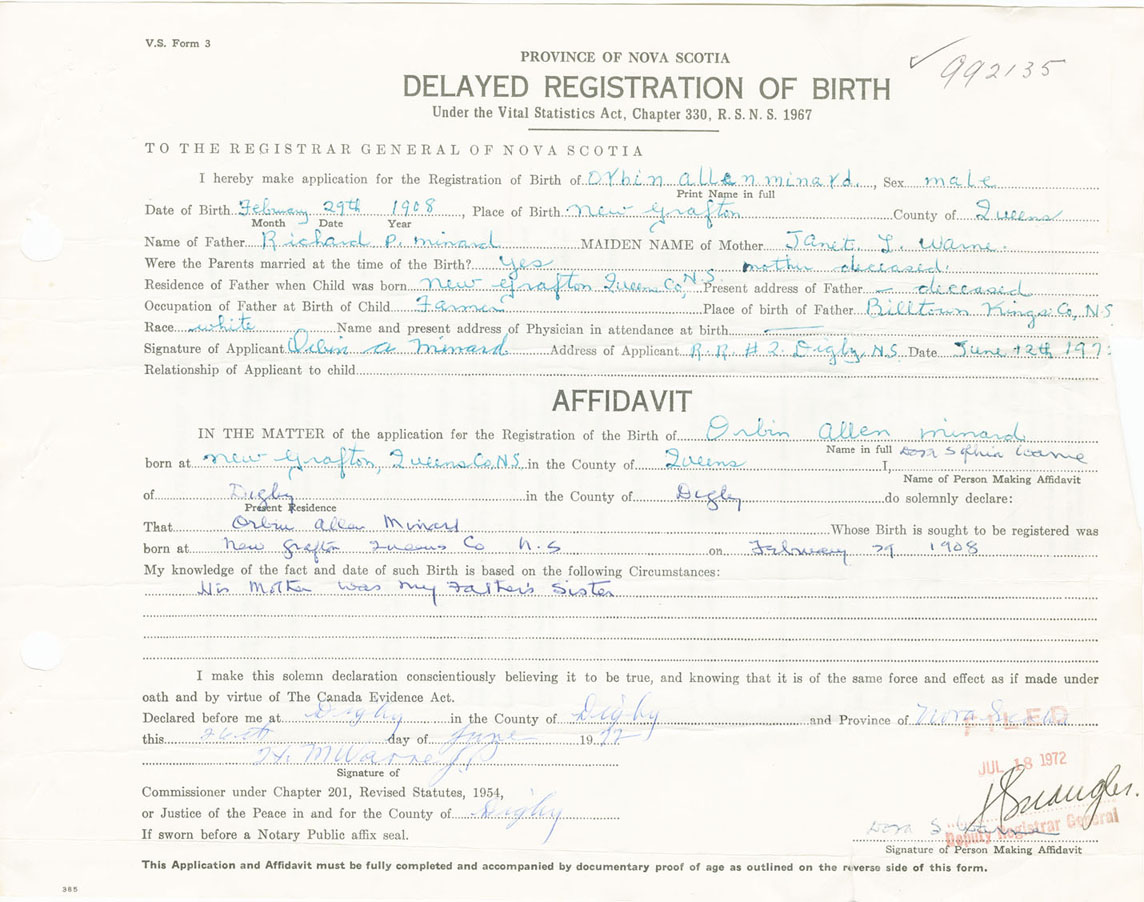 V.S. Form 3
PROVINCE OF NOVA SCOTIA
992135
DELAYED REGISTRATION OF BIRTH
Under the Vital Statistics Act, Chapter 330, R. S. N. S. 1967
TO THE REGISTRAR GENERAL OF NOVA SCOTIA
I hereby make application for the Registration of Birth of Orbin Allen Minard, Sex male
Print Name in full
Date of Birth February 29th 1908, Place of Birth New Grafton County of Queens
Month Date Year
Name of Father Richard P. Minard MAIDEN NAME of Mother Janet L. Warne.
Were the Parents married at the time of the Birth? Yes mother deceased.
Residence of Father when Child was born New Grafton Queens Co, N.S. Present address of Father - deceased
Occupation of Father at Birth of Child Farmer Place of birth of Father Billtown Kings Co, N.S
Race white Name and present address of Physician in attendance at birth
Signature of Applicant Orbin A Minard Address of Applicant R.R. #2. Digby N.S. Date June 12th 197
Relationship of Applicant to child
AFFIDAVIT
IN THE MATTER of the application for the Registration of the Birth of Orbin Allen Minard
Name in full
born at New Grafton, Queens Co. N.S. in the County of Queens I, Dora Sophia Warne
Name of Person Making Affidavit
of Digby in the County of Digby do solemnly declare:
Present Residence
That Orbin Allen Minard Whose Birth is sought to be registered was
born at New Grafton Queens Co N.S on February 29 1908
My knowledge of the fact and date of such Birth is based on the following Circumstances:
His Mother was my Father's Sister
I make this solemn declaration conscientiously believing it to be true, and knowing that it is of the same force and effect as if made under
oath and by virtue of The Canada Evidence Act.
Declared before me at Digby in the County of Digby and Province of Nova Scotia
FILED
this day of June 1972
JUL 18 1972
H. M Warne
Signature of
Commissioner under Chapter 201, Revised Statutes, 1954,
or Justice of the Peace in and for the County of Digby
Dora S Warne
Deputy Registrar General
If sworn before a Notary Public affix seal.
Signature of Person Making Affidavit
This Application and Affidavit must be fully completed and accompanied by documentary proof of age as outlined on the reverse side of this form.
385